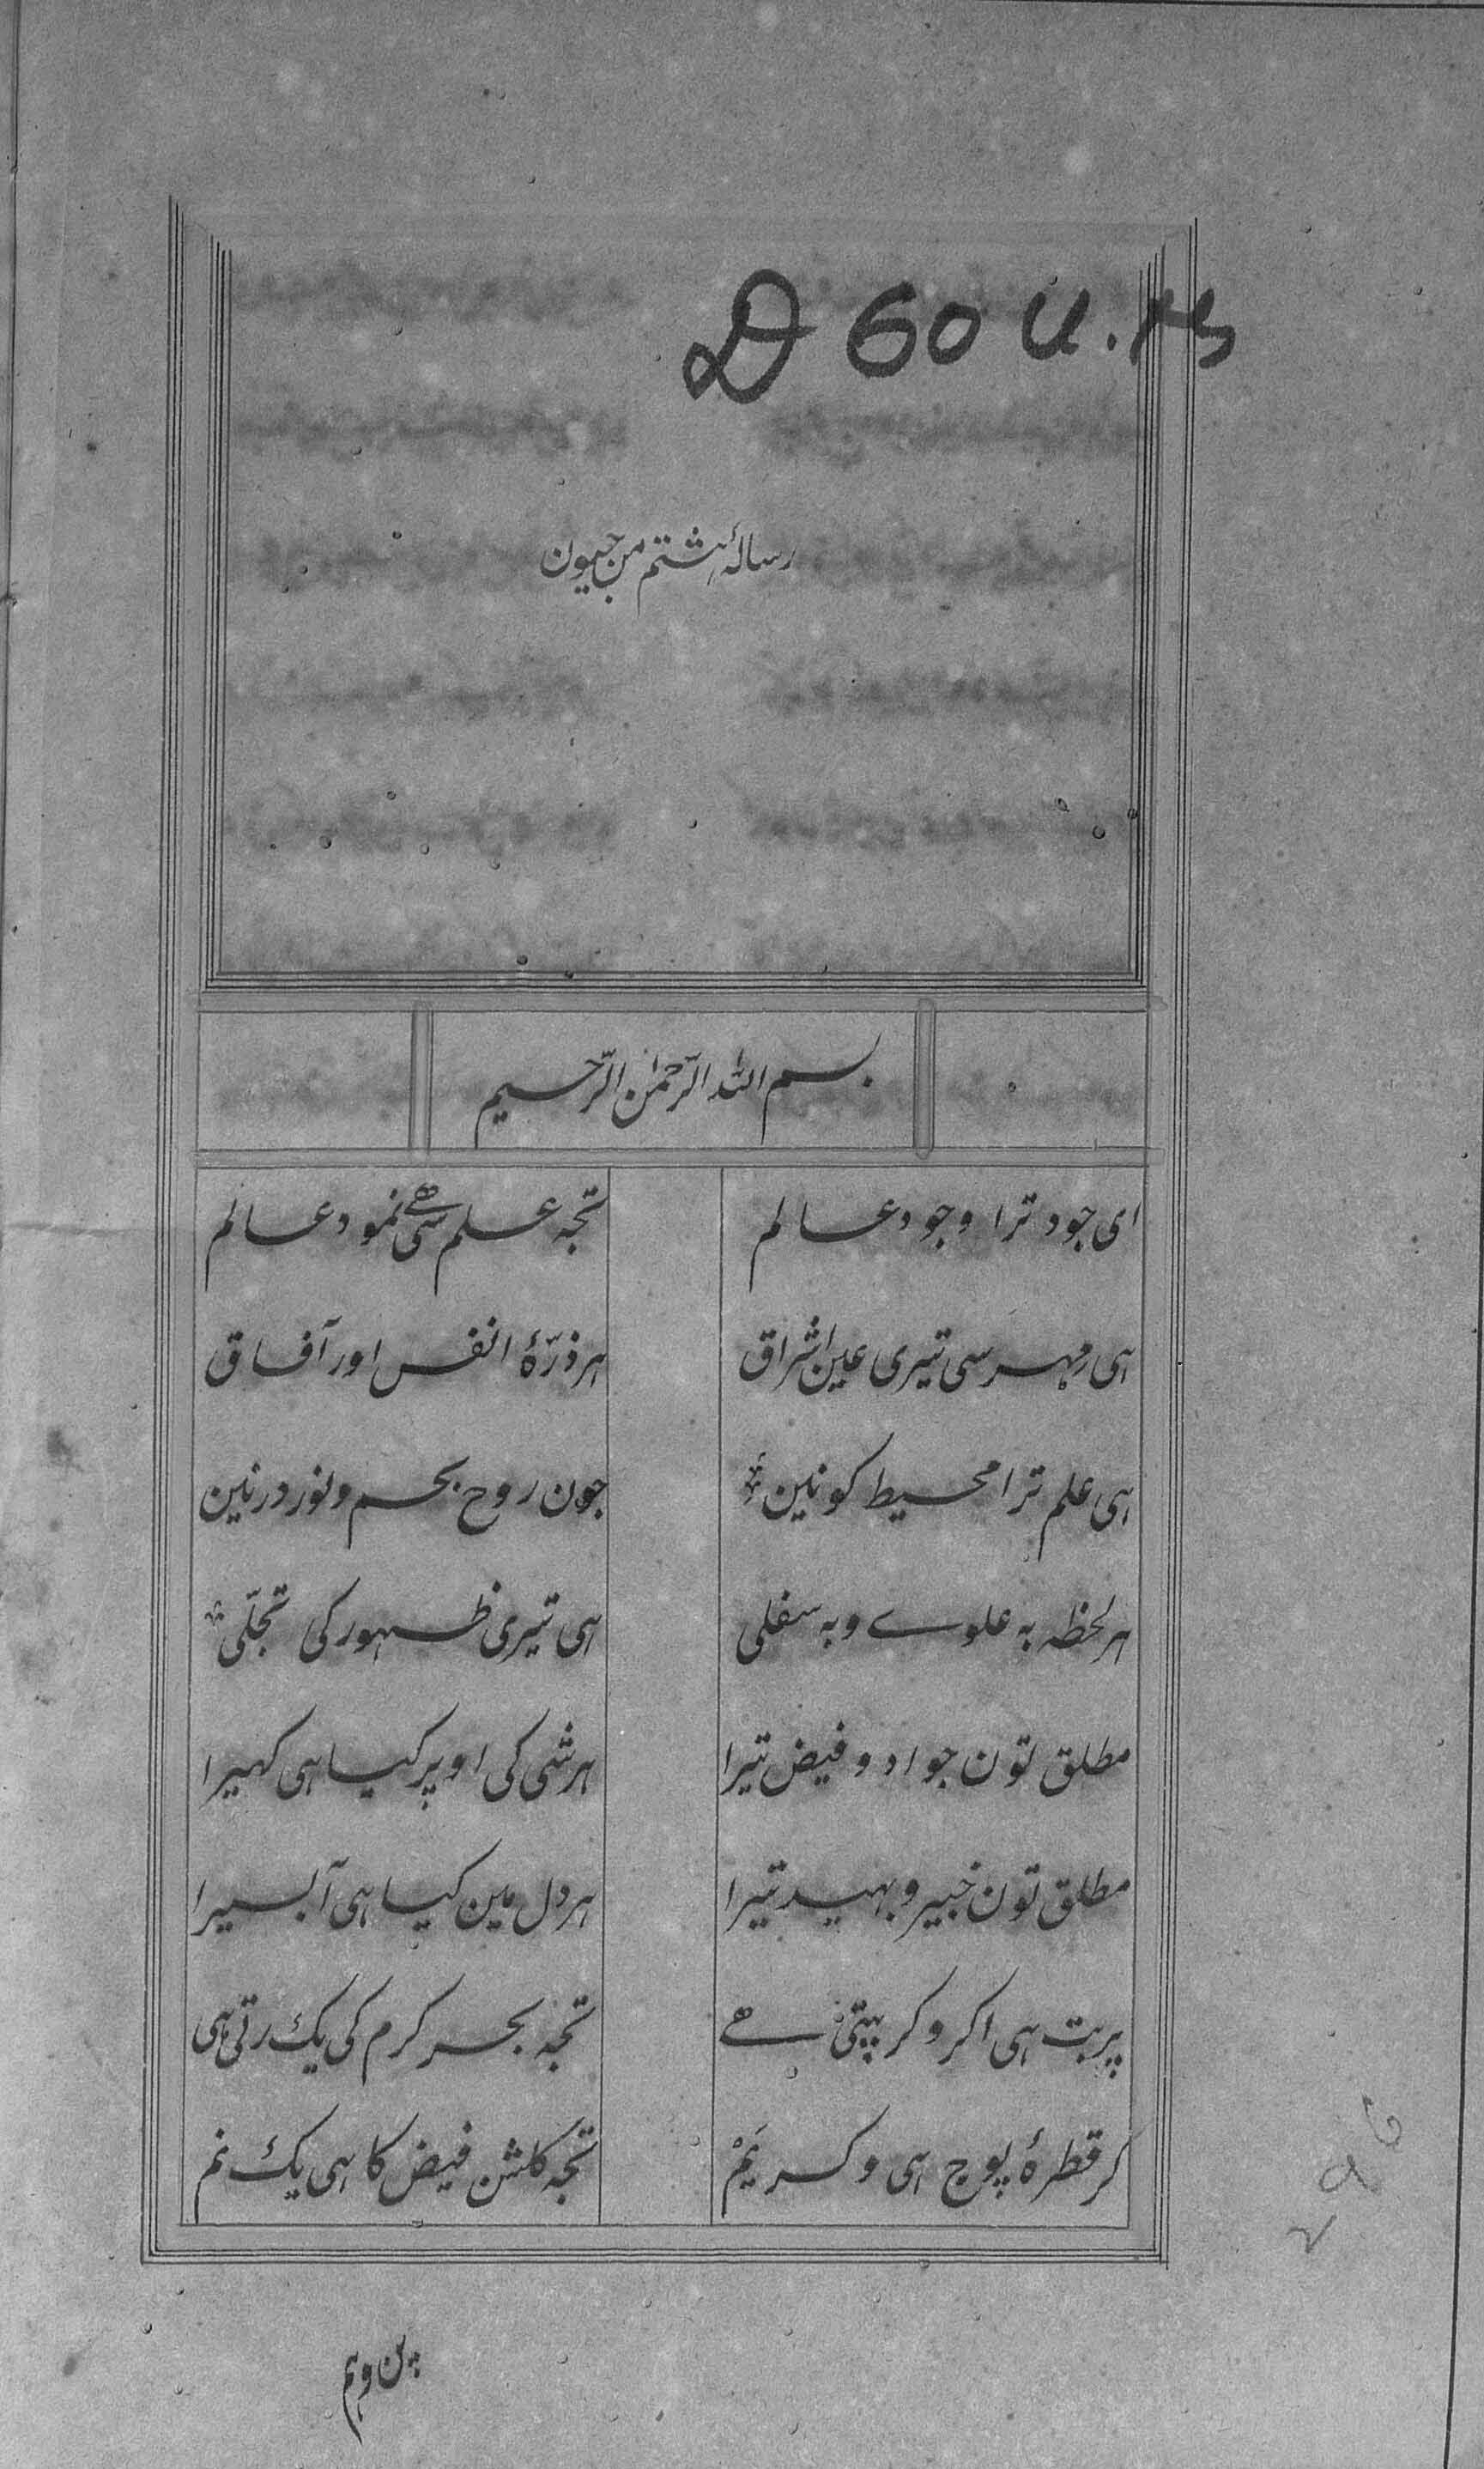 D 60 U.
رسالۂ ہشتم من جیون
بسم الله الرّحمٰن الرّحیم
ای جود ترا وجود عالم تجہ علم سی ھے نمود عالم
ہی مِہر سی تیری عین اشراق ہر ذرّۂ انفس اور آفاق
ہی علم ترا محیط کونین جون روح بجسم و نور در نین
ہر لحظہ بہ علوے و بہ سفلی ہی تیری ظہور کی تجلّی
مطلق تون جواد و فیض تیرا ہر شی کی اوپر کیا ہی کہیرا
مطلق تون خبیر و بہید تیرا ہر دل مین کیا ہی آ بسیرا
پربت ہی اکر و کر پتی ھے تجہ بحر کرم کی یک رتی ہی
کر قطرۂ پوج ہی و کر یَمْ تجہ کلشن فیض کا ہی یک نم
پن وہم